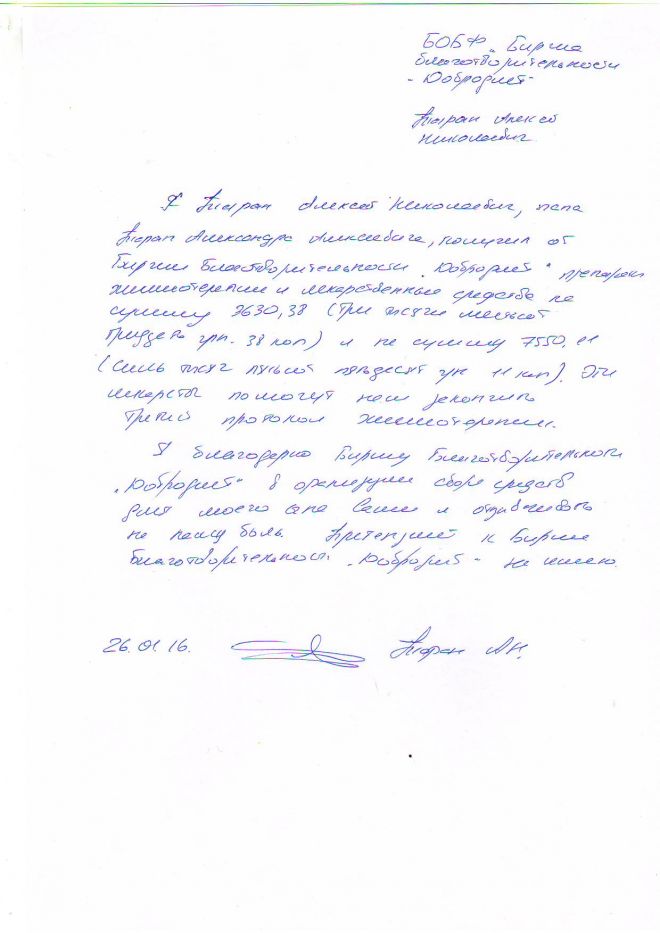 БОБФ „Биржа
благотворительности
"Добродия"
Таран Алексей
Николаевич
Я Таран Алексей Николаевич, папа
Таран Александра Алексеевича, получил от
Биржи Благотворительности „Добродия" препараты
химиотерапии и лекарственные средства на
сумму 3630,38 (Три тысячи шестьсот
тридцать грн. 38 коп) и на сумму 7550,11
(семь тысяч пятьсот пятьдесят грн 11 коп). Эти
лекарства помогут нам закончить
третий протокол химиотерапии.
Я благодарю Биржу Благотворительности
„Добродия" в организации сбора средств
для моего сына Саши и
на нашу боль. Претензий к Бирже
благотворительности „Добродия" не имею.
26.01.16. Таран АН.